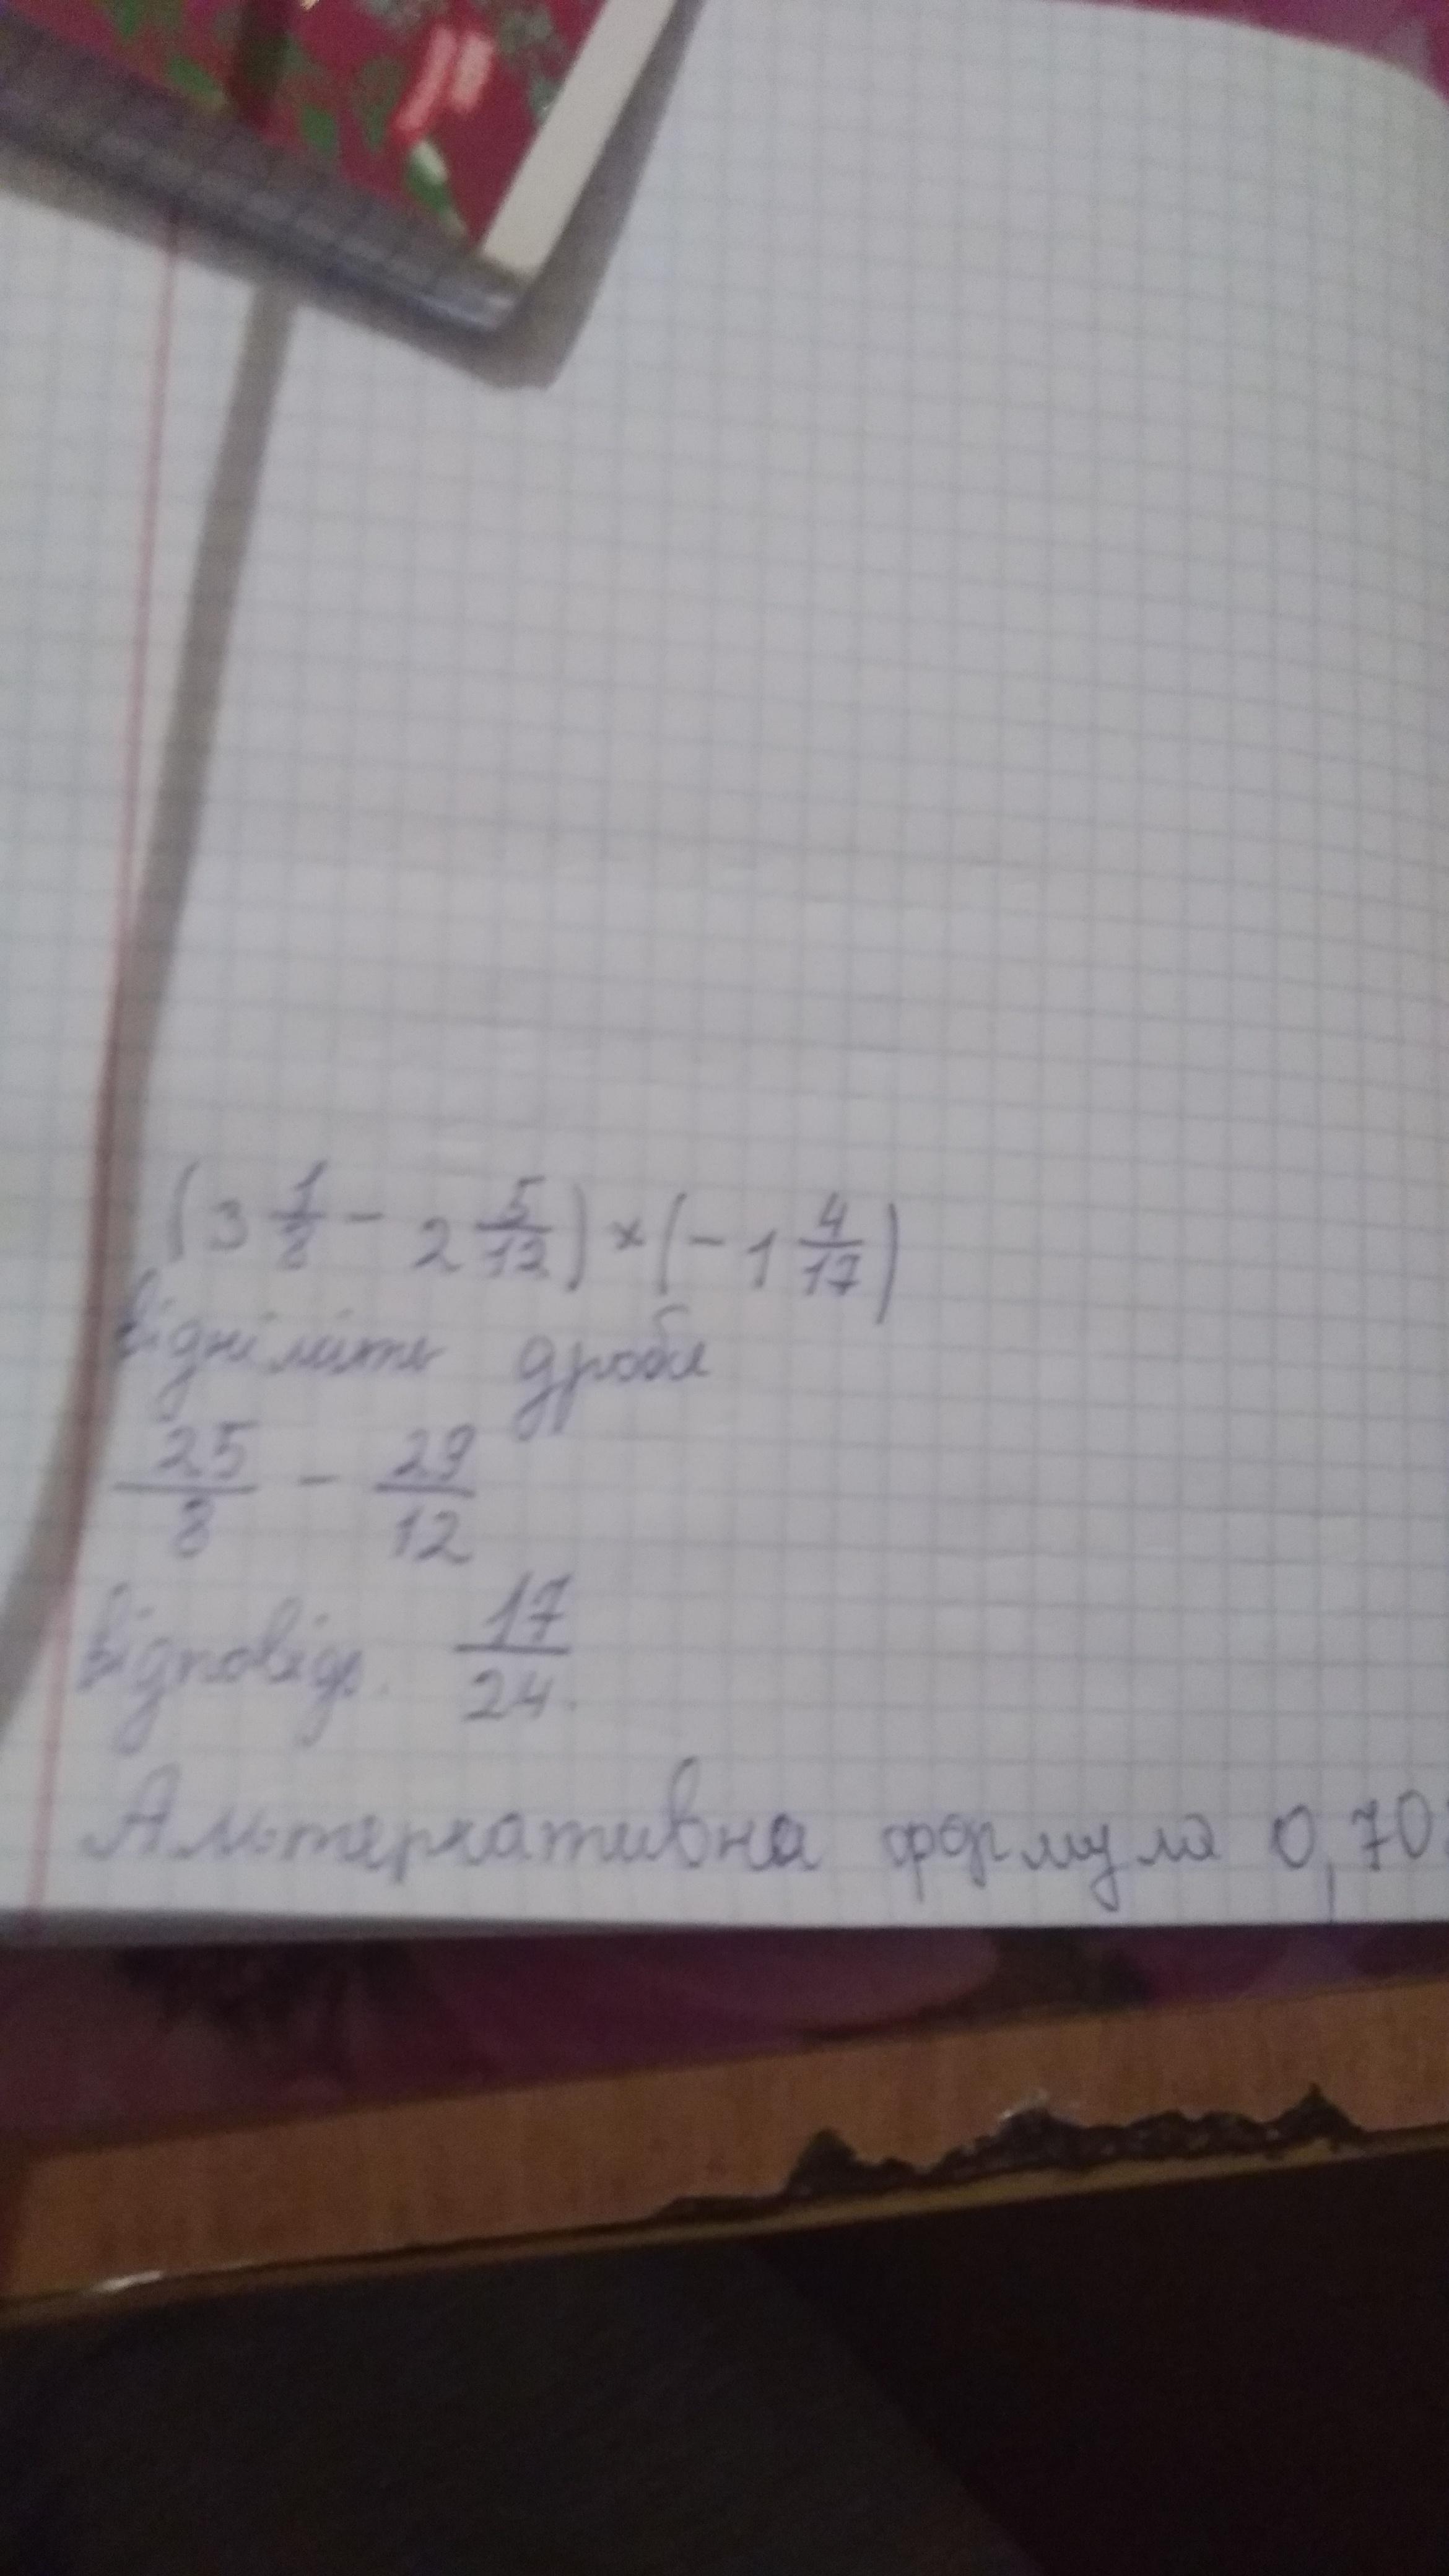 (3 1/8 - 2 5/12) × (-1 4/17)
відніміть дроби
25/8 - 29/12
відповідь. 17/24.
Альтернативна формула 0,70